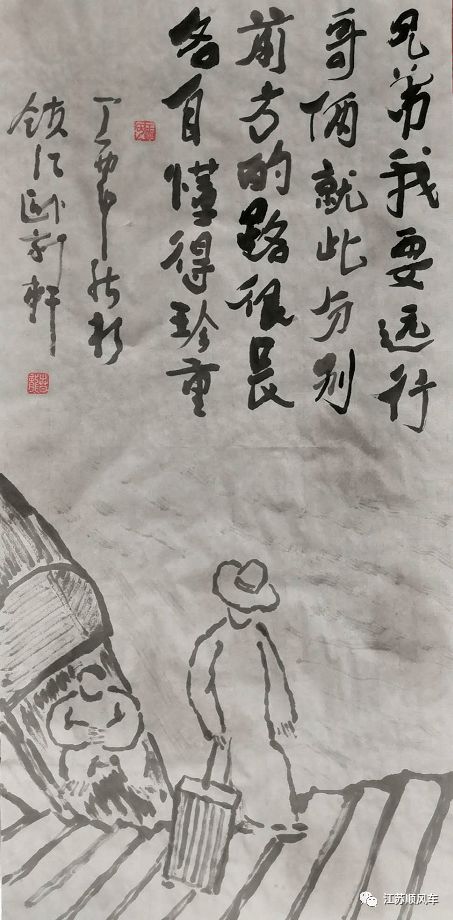 兄弟我要远行
哥俩就此分别
前方的路很长
各自懂得珍重
丁酉年秋于
镇江卧彩轩
江苏顺风车